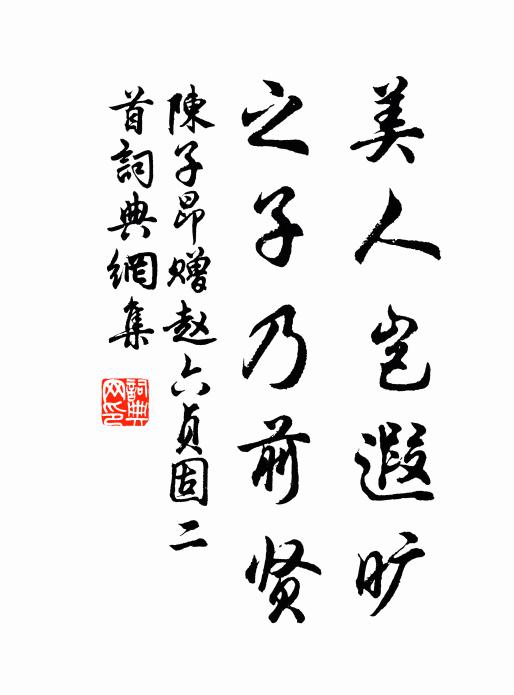 美人岂遐旷
之子乃前贤
陳子昂赠赵六贞固二
首詞典網集
詞典网印